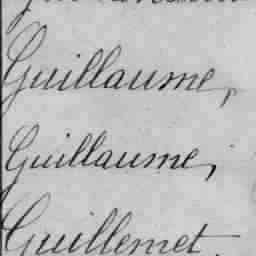 Guillaume,
Guillaume,
Guillemet.